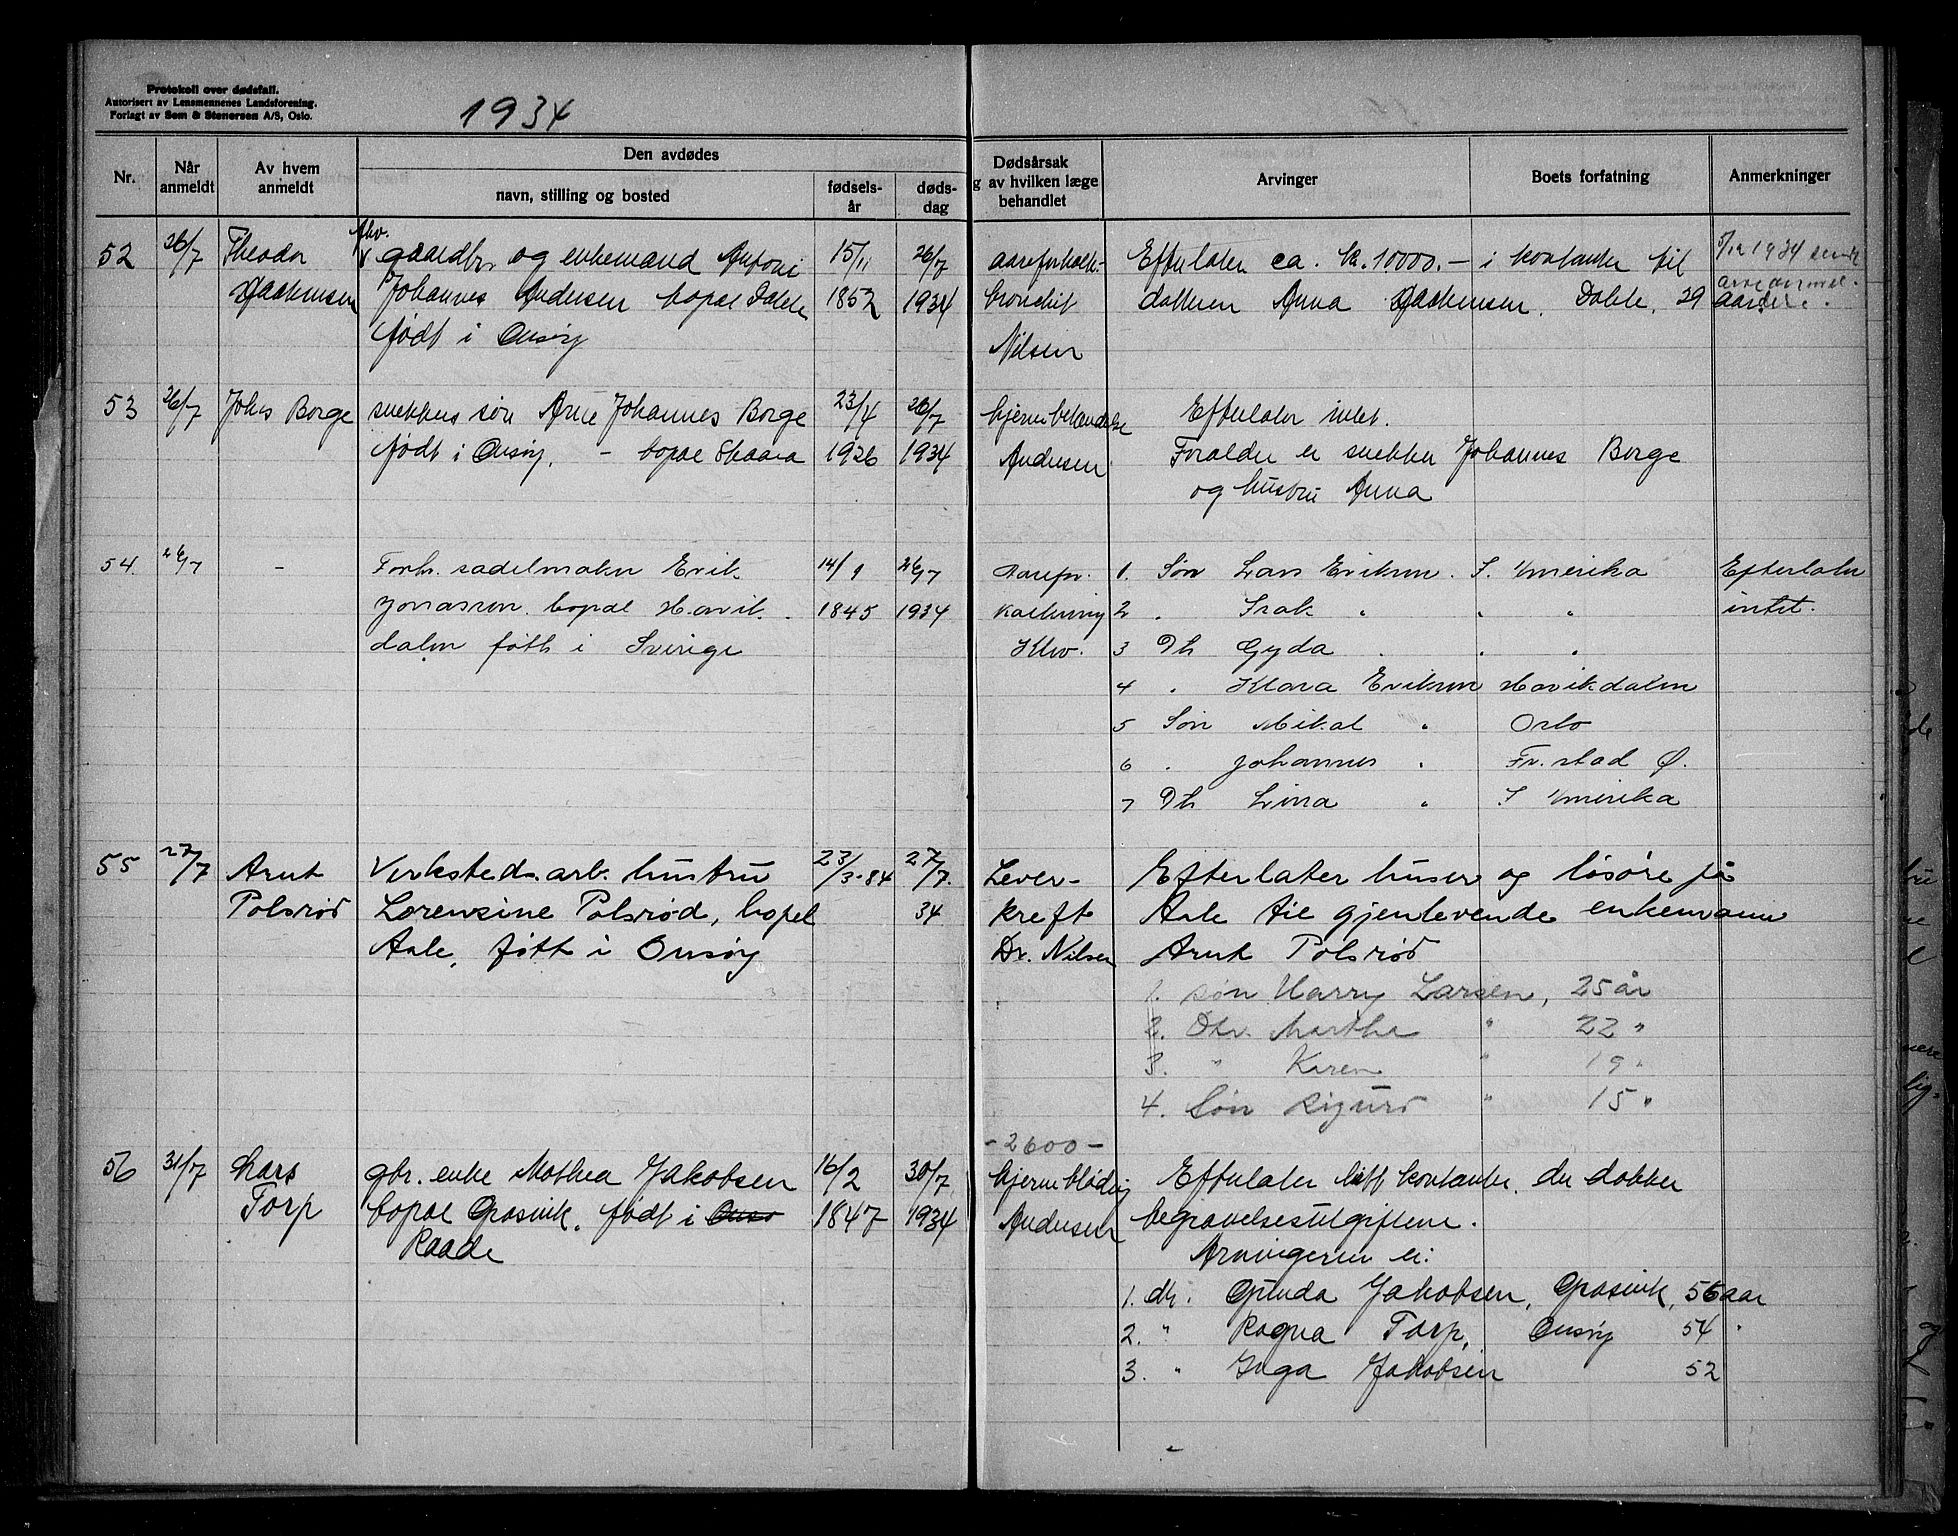 Protokoll over dødsfall.
Autorisert av Lensmennenes Landsforening.
Forlagt av Sem & Stenersen A/S, Oslo.
1934
Nr.
Når anmeldt
Av hvem anmeldt
Den avdødes
navn, stilling og bosted
fødsels-år
døds-dag
Dødsårsak
av hvilken læge
behandlet
Arvinger
Boets forfatning
Anmerkninger
52 26/7 Theodor gaardbr. og enkemand Antoni 15/11 26/7
Johannes Andersen bopæl Dale 1852 1934
født i Onsøy
bronchit
Nilsen
Efterlater ca. kr. 10000.- i kontanter til
datteren Anna Dale, 29 aar
5/12 1934 sendt
53 26/7 Johs Borge snekkers søn Arne Johannes Borge 23/4 26/7
født i Onsøy. - bopæl Skaara 1926 1934
hjernebetændelse
Andersen
Efterlater intet.
Forælder er snekker Johannes Borge
og hustru Anna
54 26/7 - Forh. sadelmaker Erik 14/9 26/7
Jonassen. bopæl Havik- 1845 1934
dalen født i Sverige
Aarefor-
kalkning
Klev.
1. Søn Lars Eriksen. I Amerika
2 " Isak " " "
3 Dtr Gyda " " "
4 " Klara Eriksen Havikdalen
5 Søn Mikal " Oslo
6 " Johannes " Fr.stad Ø.
7 Dtr Lina " I Amerika
Efterlater
intet.
55 27/7 Arnt Verksted.arb. hustru 23/3-84 27/7.
Polsrød Lorensine Polsrød, bopel 34
Aale, født i Onsøy
Lever-
kreft
Dr. Nilsen
Efterlater huser og løsøre på
Aale til gjenlevende enkemann
Arnt Polsrød
1. søn Harry Larsen, 25 år
2. Dtr. Martha " 22 "
3. " Karen " 19 "
4. Søn Sigurd " 15 "
56 31/7 Lars gbr. enke Mathea Jakobsen 16/2 30/7
Torp bopæl Græsvik. født i Onsø 1847 1934
Raade
- 2600 -
hjerneblødning
Andersen
Efterlater litt kontanter. der dækker
begravelsesutgiftene.
Arvingerne er:
1. dtr. Gunda Jakobsen, Græsvik, 56 aar
2. " Ragna Torp, Onsøy 54 "
3. " Inga Jakobsen 52